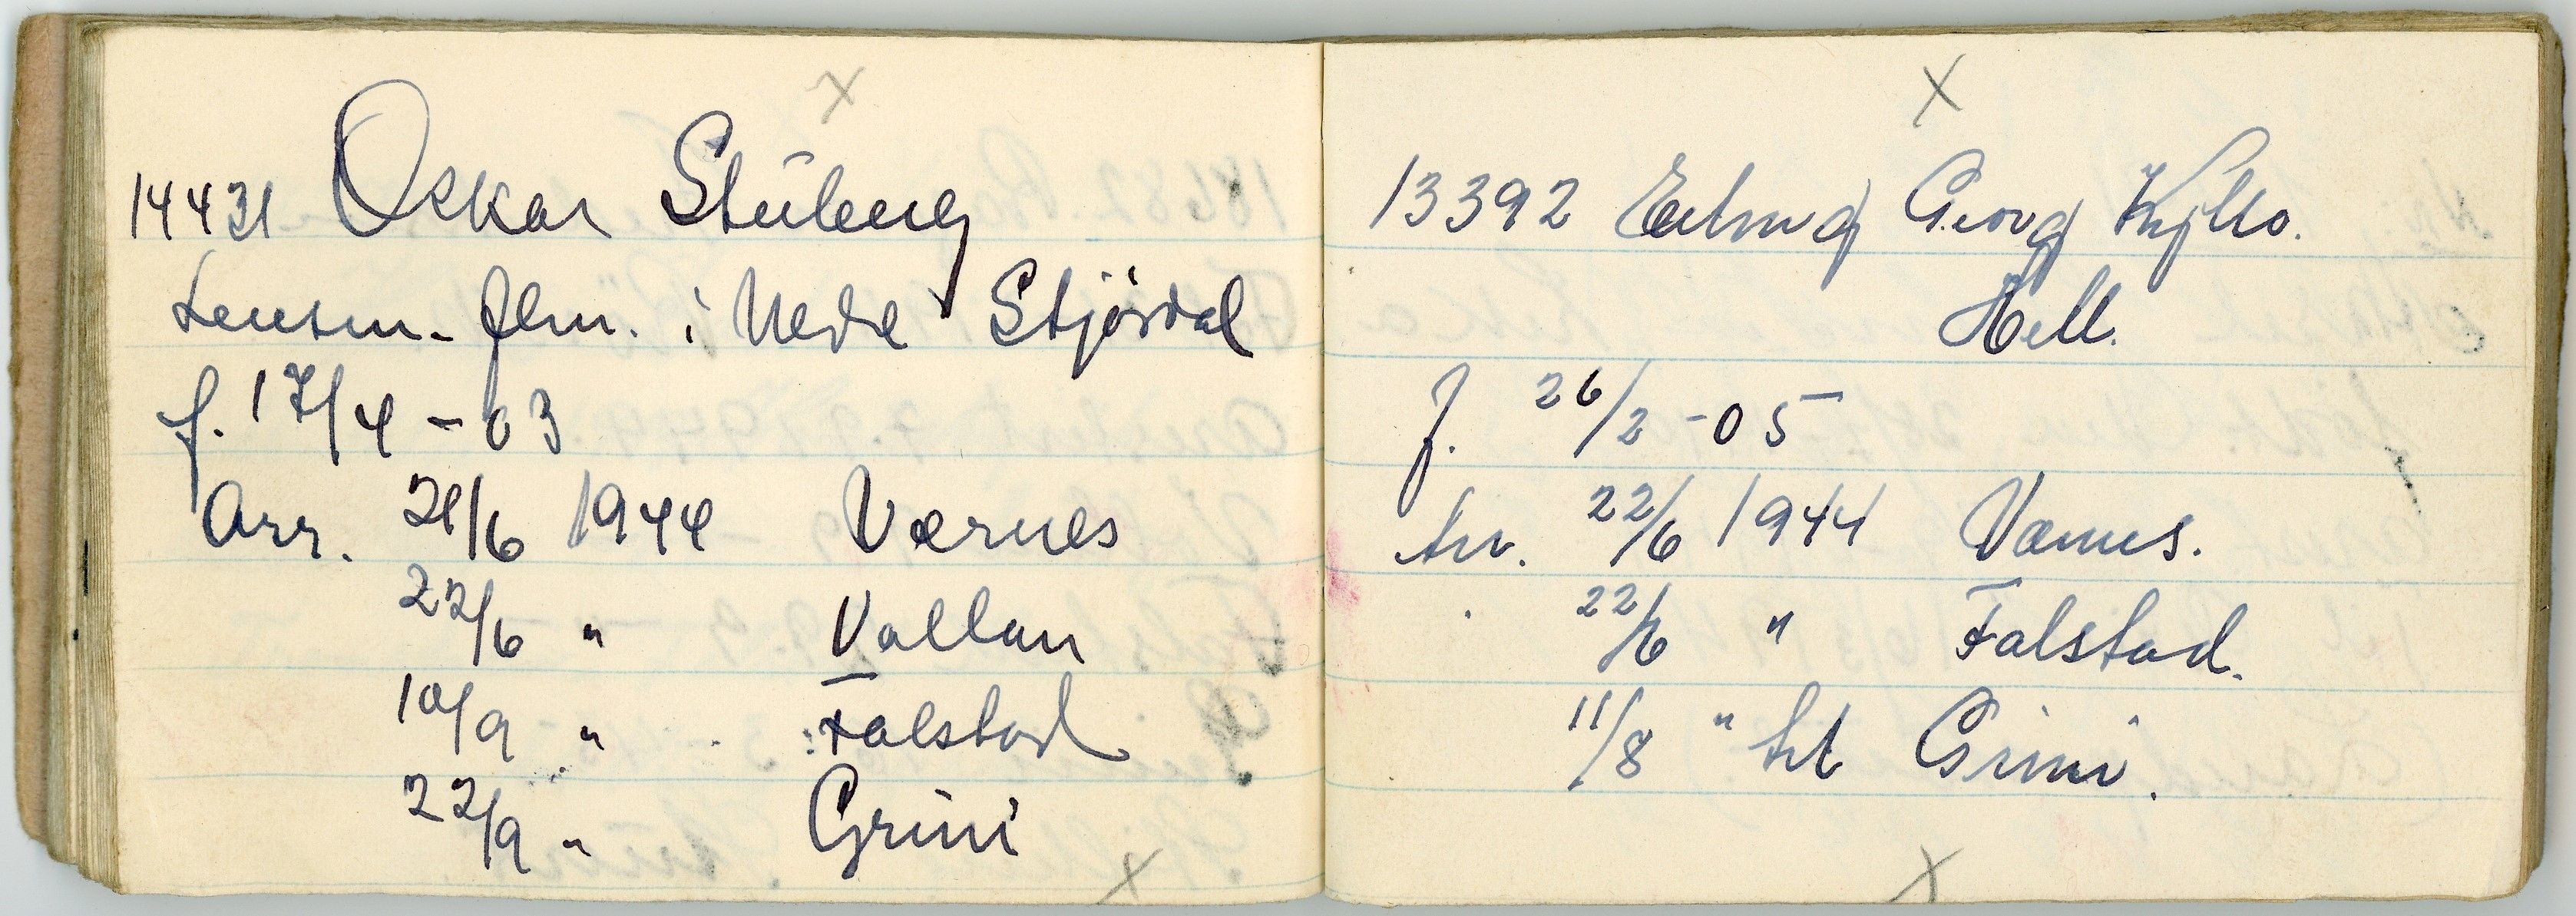 x
14431 Oskar Stüberg
Lensm. flm. i Nedre Stjørdal
f. 17/4 - 03
Arr. 21/6 1944 Værnes
22/6 " Vollan
10/9 " Falstad
22/9 " Grini
x
x
13392 Georg Kyllo.
Hell.
f. 26/2 - 05
Arr. 22/6 1944 Værnes.
22/6 " Falstad.
11/8 " til Grini.
x